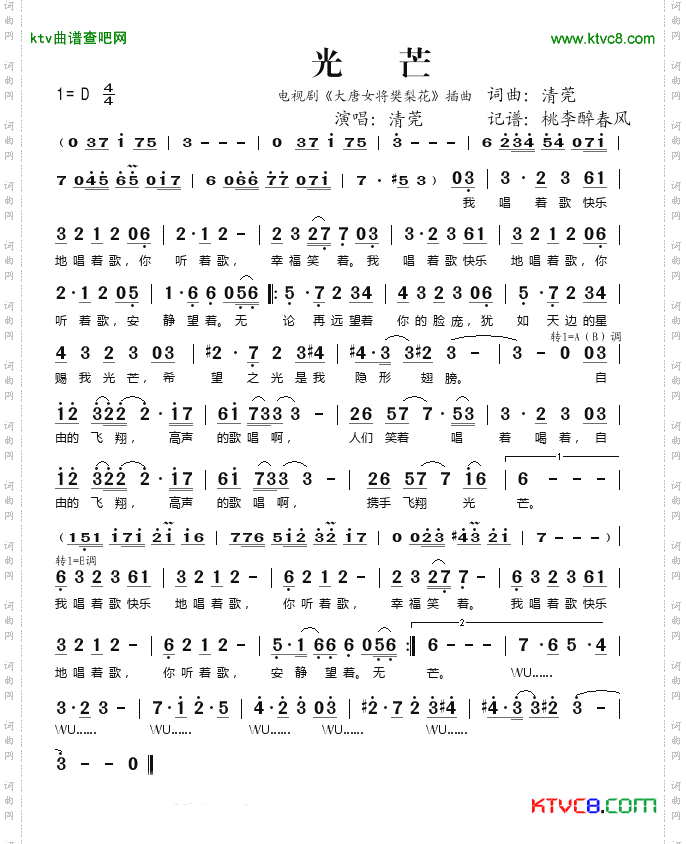 ktv曲谱查吧网
www.ktvc8.com
光 芒
1= D 4/4
电视剧《大唐女将樊梨花》插曲 词曲：清莞
演唱：清莞 记谱：桃李醉春风
( 0 37 i 75 | 3 - - - | 0 37 i 75 | 3 - - - | 6 234 54 07i |
7 045 65 017 | 6 066 77 071 | 7 · #5 3 ) 03 | 3 · 2 3 61 |
我 唱 着 歌 快乐
3 2 1 2 06 | 2 · 1 2 - | 2 3 27 7 03 | 3 · 2 3 61 | 3 2 1 2 06 |
地 唱 着 歌，你 听 着 歌， 幸 福 笑 着。我 唱 着 歌 快乐 地 唱 着 歌，你
2 · 1 2 05 | 1 · 6 6 056 ‖: 5 · 7 2 34 | 4 3 2 3 06 | 5 · 7 2 34 |
听 着 歌，安 静 望 着。无 论 再 远望着 你 的 脸 庞，犹 如 天 边的星
转1=A（B）调
4 3 2 3 03 | #2 · 7 2 3#4 | #4 · 3 3#2 3 - | 3 - 0 03 |
赐 我 光 芒，希 望 之 光 是我 隐 形 翅 膀。 自
i2 322 2 · i7 | 6i 733 3 - | 26 57 7 · 53 | 3 · 2 2 03 |
由的 飞 翔， 高声 的歌 唱 啊， 人们 笑着 唱 着 喝 着，自
i2 322 2 · i7 | 6i 733 3 - | 26 57 7 i6 | 6 - - - |
1
由的 飞 翔， 高声 的歌 唱 啊， 携手 飞翔 光 芒。
( 151 i7i 2i i6 | 776 5i2 32 i7 | 0 023 #43 2i | 7 - - - ) |
转1=B调
6 3 2 3 61 | 3 2 1 2 - | 6 2 1 2 - | 2 3 27 7 · | 6 3 2 3 61 |
我 唱 着 歌 快乐 地 唱 着 歌， 你 听 着 歌， 幸 福 笑 着。 我 唱 着 歌 快乐
3 2 1 2 - | 6 2 1 2 - | 5 · 1 66 6 056 :‖ 6 - - - | 7 · 6 5 · 4 |
2
地 唱 着 歌， 你 听 着 歌， 安 静 望 着。无 芒。 WU......
3 · 2 3 - | 7 · i 2 · 5 | 4 · 2 3 03 | #2 · 7 2 3#4 | #4 · 3 3#2 3 - |
WU...... WU...... WU...... WU...... WU......
3 - - 0 ‖
KTVC8.COM
词曲网